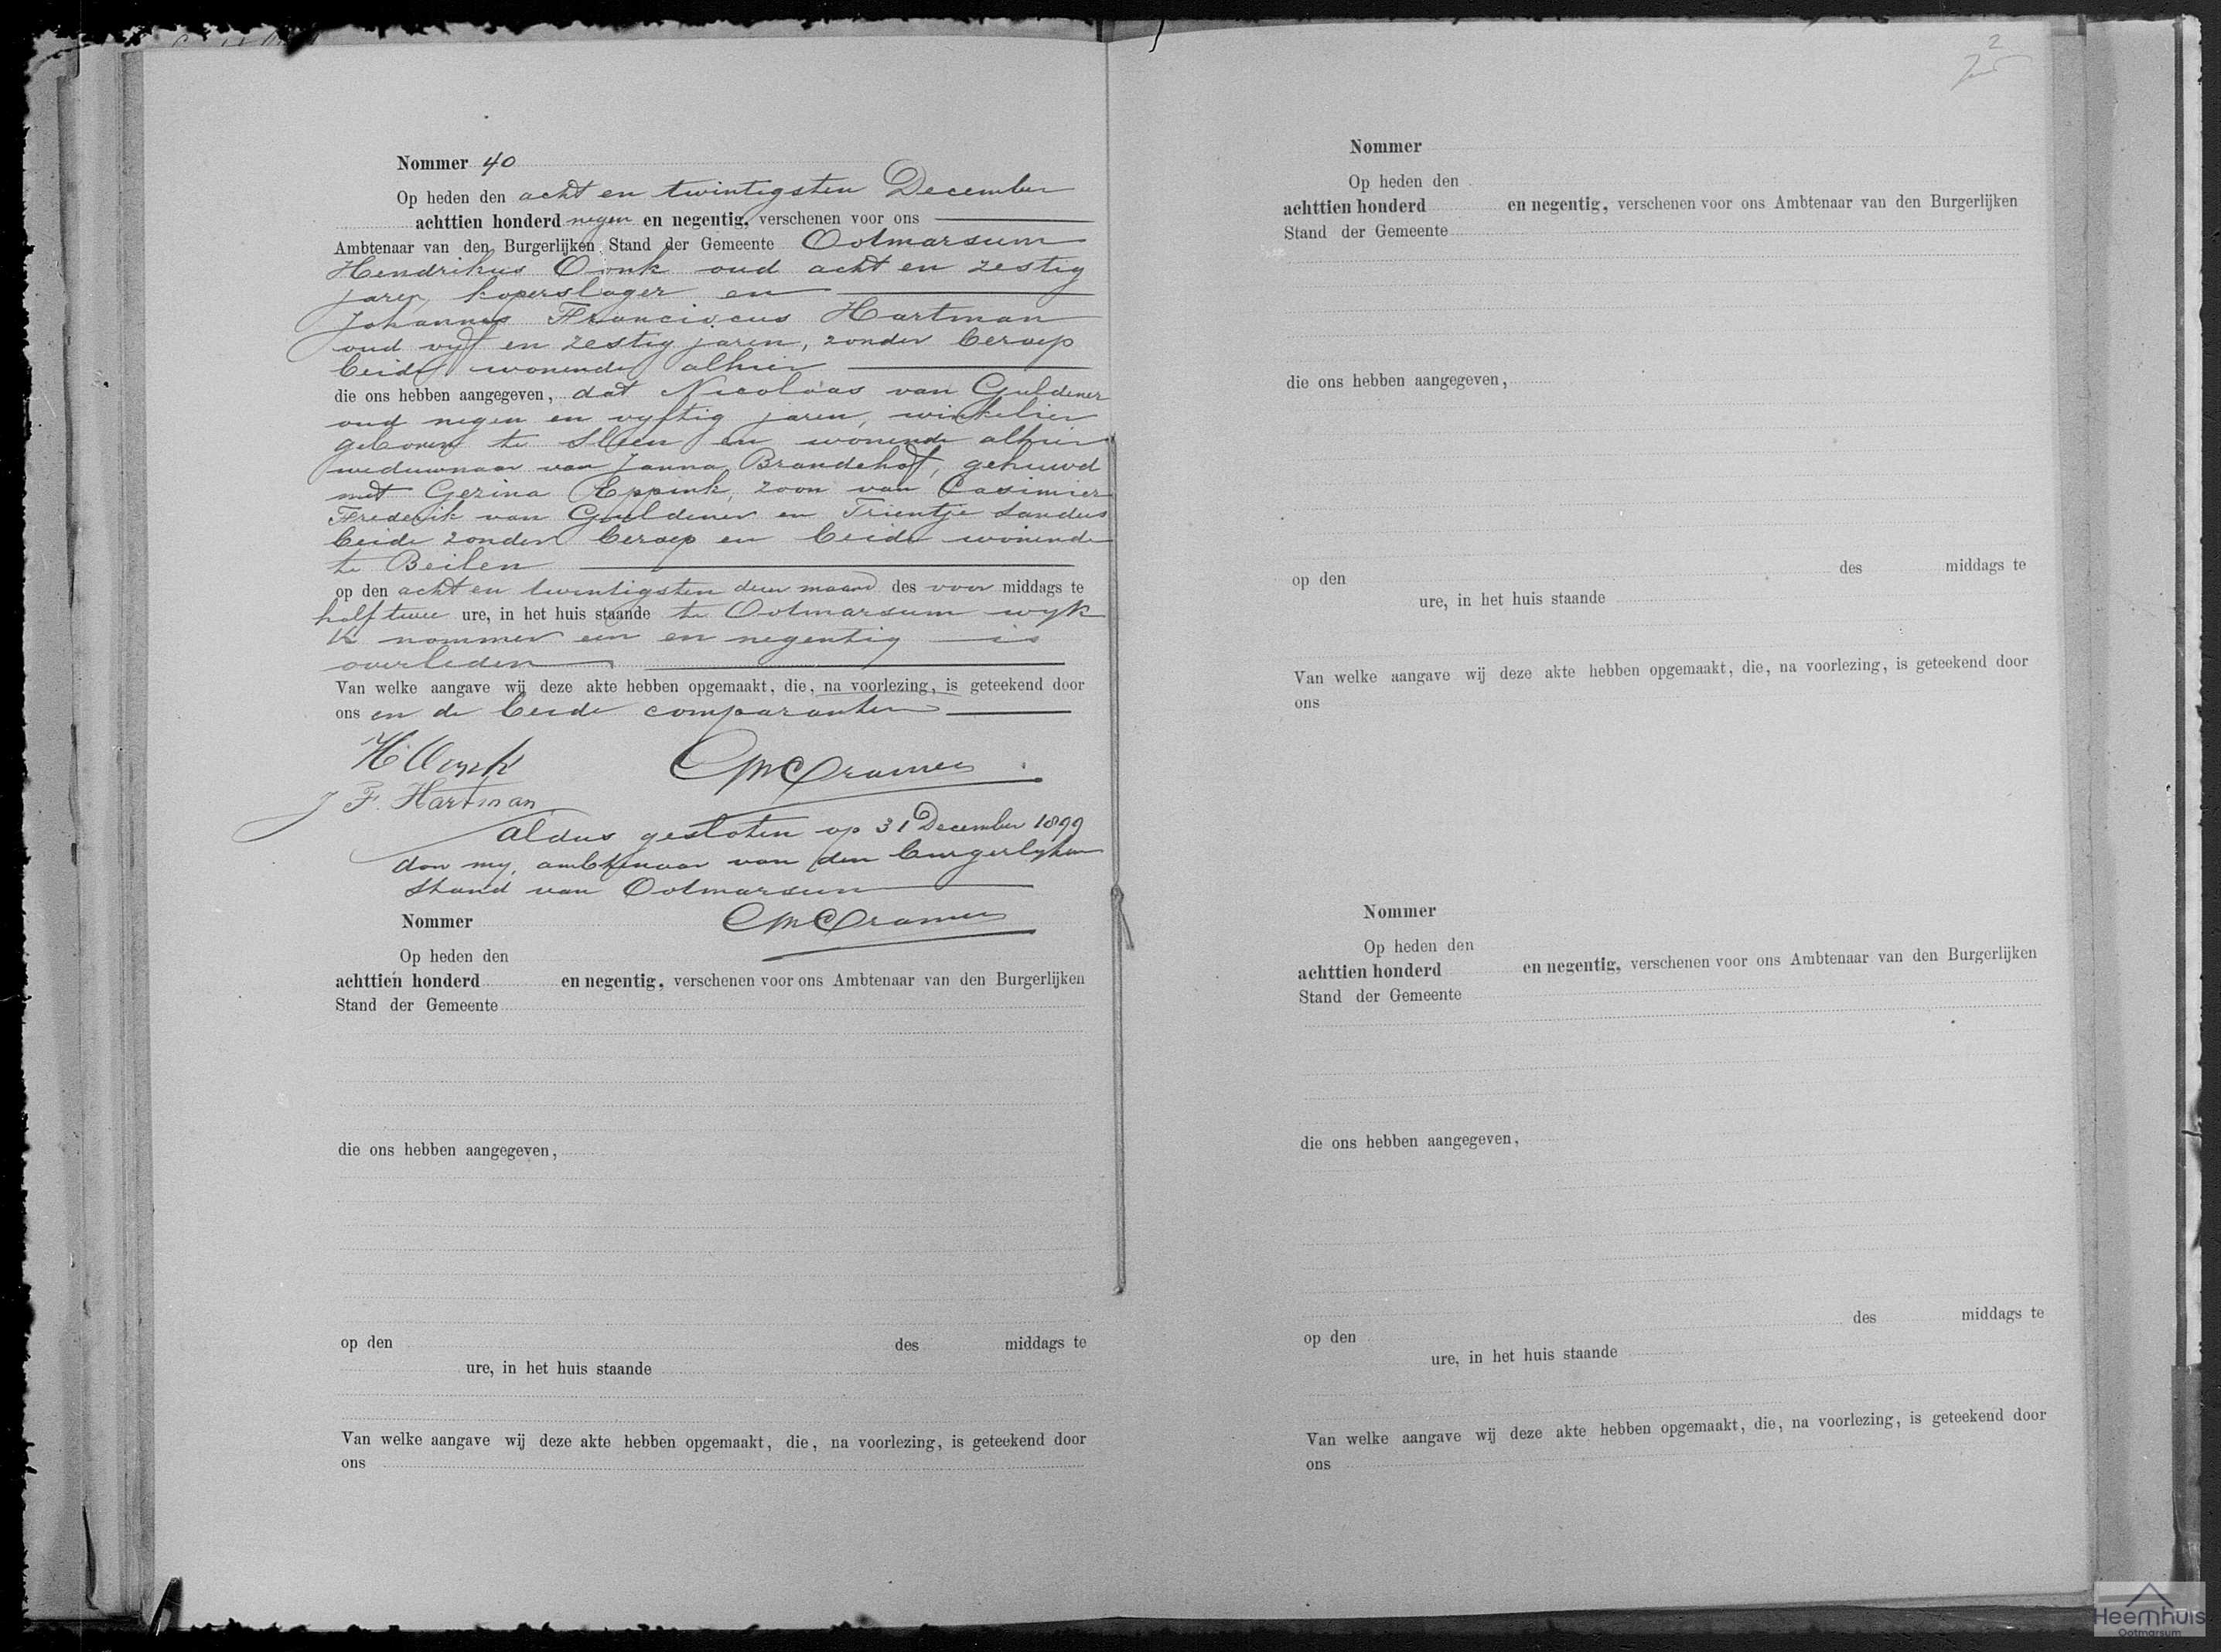 Nommer 40
Op heden den acht en twintigsten December
achttien honderd negen en negentig, verschenen voor ons
Ambtenaar van den Burgerlijken Stand der Gemeente Ootmarsum
Hendrikus Oonk oud acht en zestig
jaren, koperslager en
Johannes Franciscus Hartman
oud vyf en zestig jaren, zonder beroep
beide wonende alhier
die ons hebben aangegeven, dat Nicolaas van Guldener
oud negen en vyftig jaren, winkelier
geboren te Sleen en wonende alhier
weduwnaar van Janna Brandehof, gehuwd
met Gezina Eppink, zoon van Casimier
Frederik van Guldener en Trientje Sanders
beide zonder beroep en beide wonende
te Beilen
op den acht en twintigsten dezer maand des voor middags te
half twee ure, in het huis staande te Ootmarsum wyk
K nommer een en negentig is
overleden
Van welke aangave wij deze akte hebben opgemaakt, die, na voorlezing, is geteekend door
ons en de beide comparanten
H Oonk
Cramer
J F. Hartman
Aldus gesloten op 31 December 1899
door my, ambtenaar van den burgerlyken
stand van Ootmarsum
Cramer
Nommer
Op heden den
achttien honderd en negentig, verschenen voor ons Ambtenaar van den Burgerlijken
Stand der Gemeente
die ons hebben aangegeven,
op den des middags te
ure, in het huis staande
Van welke aangave wij deze akte hebben opgemaakt, die, na voorlezing, is geteekend door
ons
Nommer
Op heden den
achttien honderd en negentig, verschenen voor ons Ambtenaar van den Burgerlijken
Stand der Gemeente
die ons hebben aangegeven,
op den des middags te
ure, in het huis staande
Van welke aangave wij deze akte hebben opgemaakt, die, na voorlezing, is geteekend door
ons
Nommer
Op heden den
achttien honderd en negentig, verschenen voor ons Ambtenaar van den Burgerlijken
Stand der Gemeente
die ons hebben aangegeven,
op den des middags te
ure, in het huis staande
Van welke aangave wij deze akte hebben opgemaakt, die, na voorlezing, is geteekend door
ons
Heemhuis
Ootmarsum